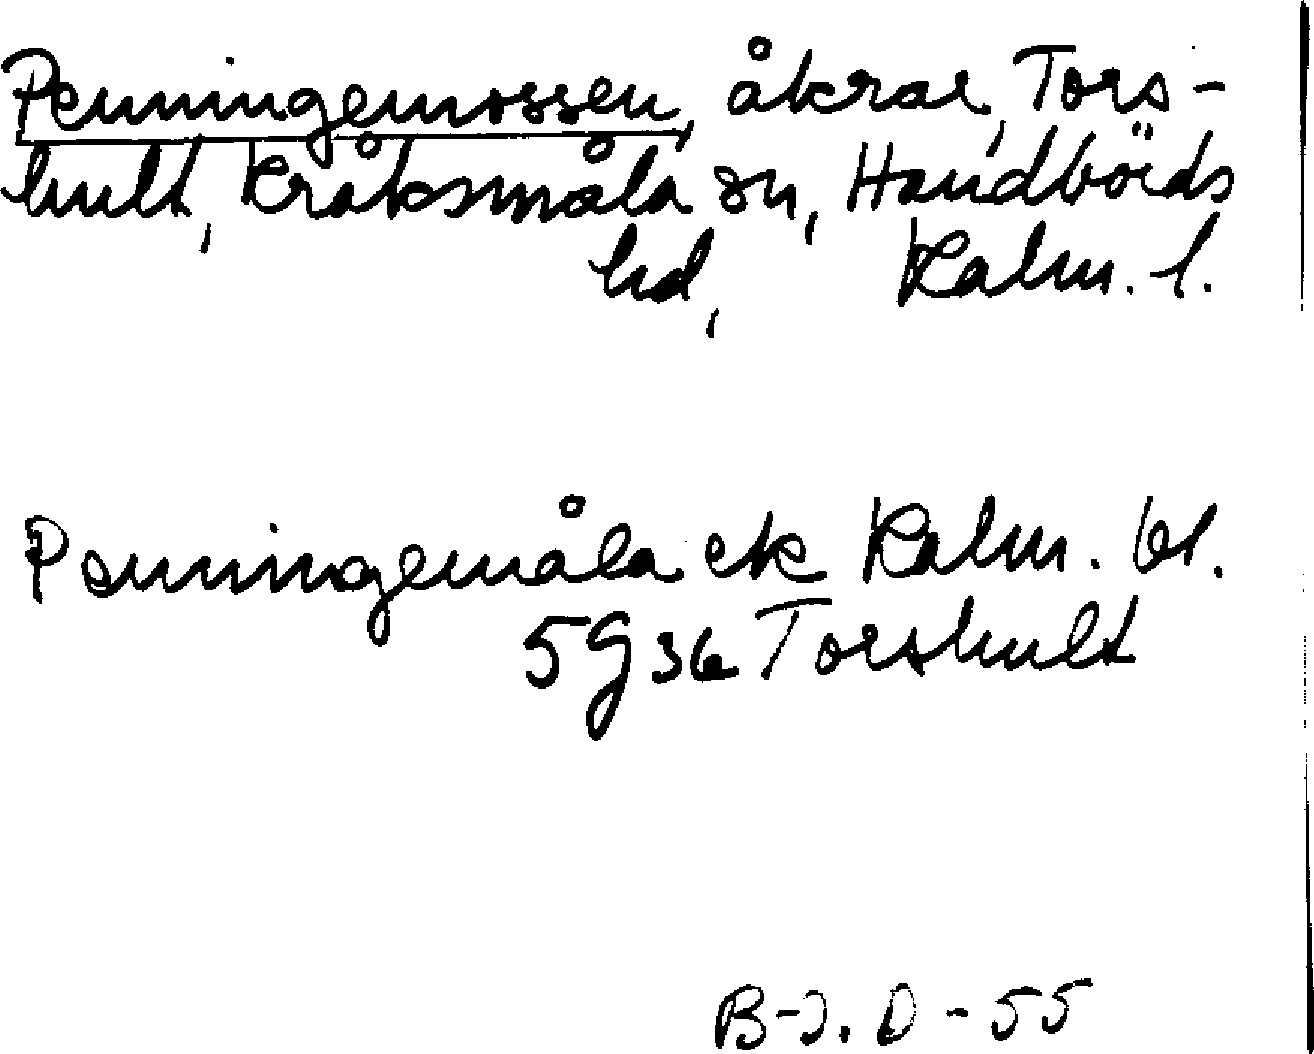 Penningemossen, åkrar, Tors-
hult, Kråksmåla sn, Handbörds
hd, Kalm. l.
Penningemåla ek Kalm. bl.
5 g 36 Torshult
B-J. D - 55